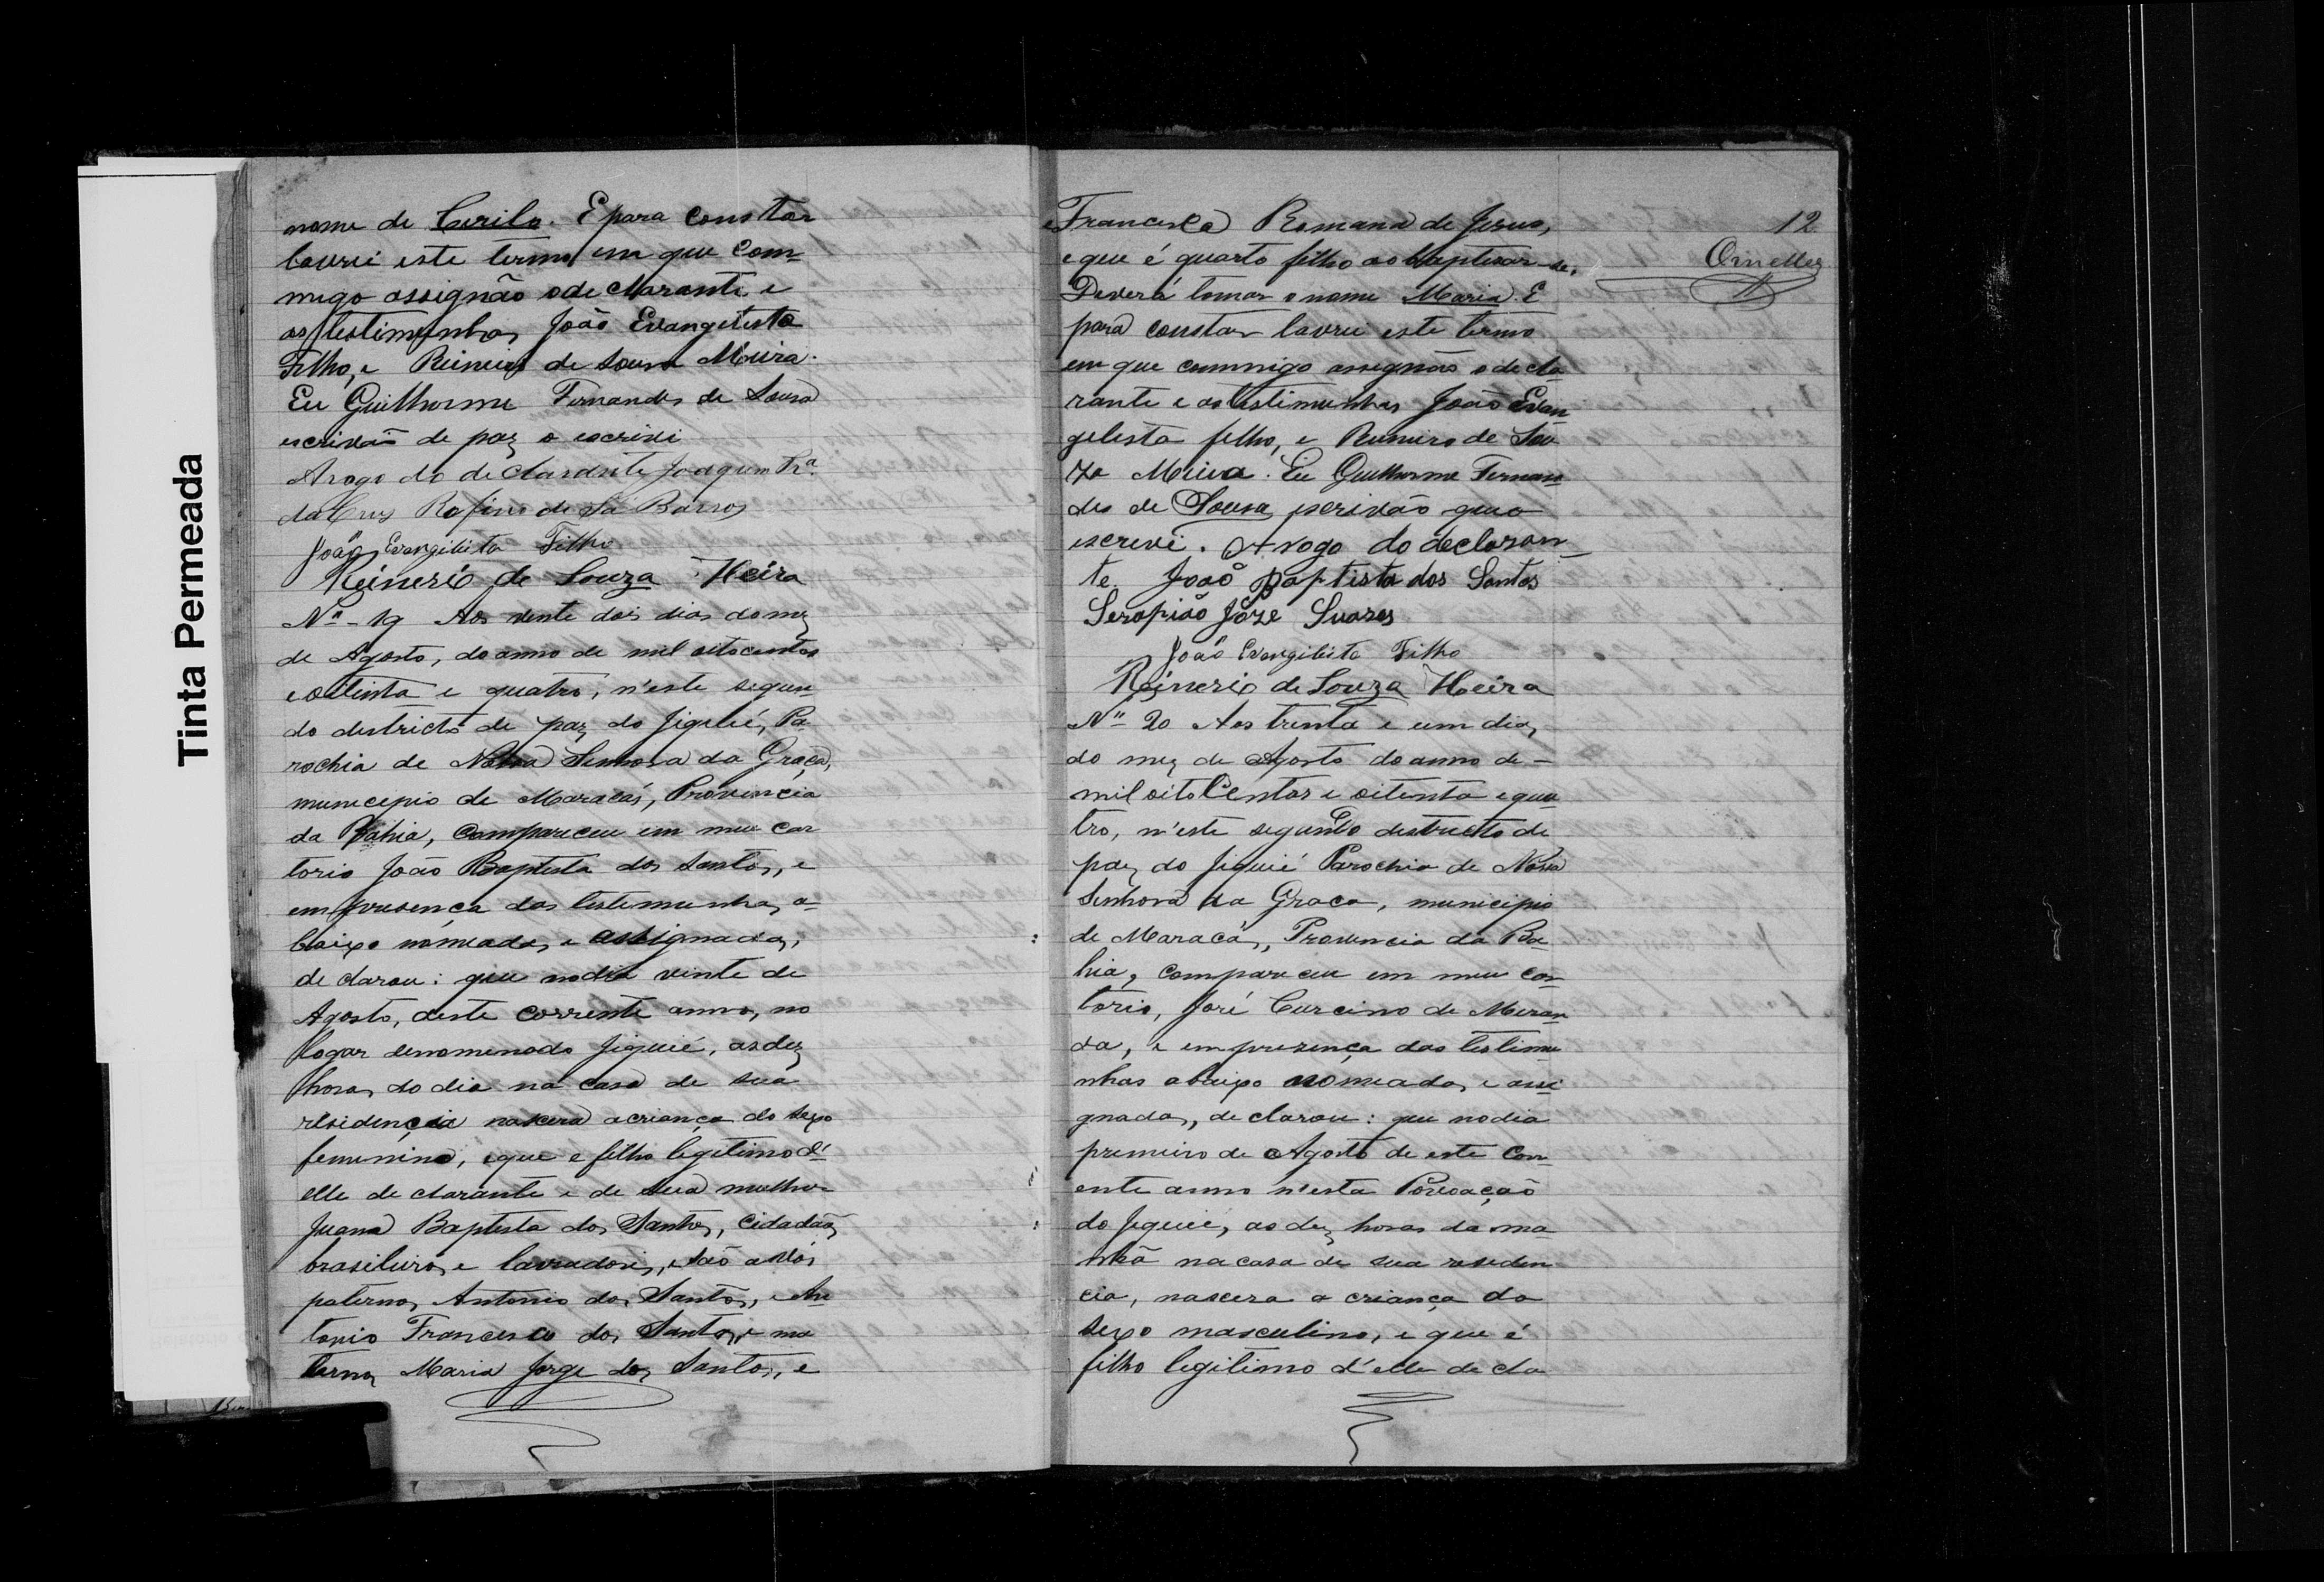 Tinta Permeada
nome de Cirilo. E para constar
lavrei este termo em que com-
migo assignão o declarante e
as testimunhas João Evangelista
Filho, e Reinerio de Sousa Meira.
Eu Guilherme Fernandes de Sousa
escrivão de paz o escrivi
Arogo do declarante Joaquim Frª
da Cruz Rofino de Sá Barros
João Evangilista Filho
Reinerio de Souza Meira
Nº - 19 Aos vente dois dias do mez
de Agosto, do anno de mil oitocentos
e oitinta e quatro, n'este segun-
do destricto de paz do Jiquié, Pa-
rochia de Nossa Senhora da Graça,
municepio de Maracás, Provincia
da Bahia, Compareceu em meu car
torio João Baptista dos Santos, e
em presença das testemunhas a-
baixo nomeadas e assignadas,
declarou: que no dia vinte de
Agosto, deste corrente anno, no
logar denomenado Jiquié, as dez
horas do dia na casa de sua
residençia nascera a criança do sexo
femenino, e que e filho legitimo d'
elle declarante e de sua mulher
Juana Baptista dos Santos, Cidadãos
brasileiros e lavradores, são avós
paternos Antonio dos Santos, e An
tonio Francisco dos Santos, e ma
ternos Maria Jorge dos Santos, e
12
Ornellas
e Francisca Romana de Jesus,
e que é quarto filho ao baptisar-se.
Deverá tomar o nome Maria. E
para constar lavrei este termo
em que commigo assignão o decla
rante e as testimunhas João Evan
gelista filho, e Reineiro de Sou
za Meira. Eu Guilherme Fernan
des de Sousa escrivão que o
escrevi. A rogo do declaran
te João Baptista dos Santos
Serapião Józe Suares
João Evangilista Filho
Reinerio de Souza Meira
Nº 20 Aos trinta e um dias
do mez de Agosto do anno de -
mil oito Centos e oitenta e qua
tro, n'este segundo destricto de
paz do Jiquié Parochia de Nossa
Senhora da Graça, municipio
de Maracás, Provencia da Ba
hia, compareceu em meu car
torio, José Curcino de Miran
da, e em presença das testimu
nhas abaixo nomeadas e assi
gnadas, declarou: que no dia
premeiro de Agosto de este Corr
ente anno n'esta Povoação
do Jiquié, as dez horas da ma
nhã na casa de sua residen
cia, nascera a criança do
sexo masculino, e que é
filho legitimo d'elle decla